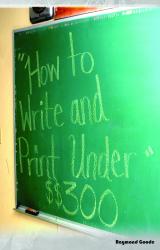 "How to
Write and
Print Under"
$$300
Raymond Goode